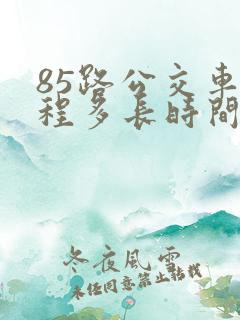 85路公交車
程多長時間
冬夜風雲
未经同意禁止转载